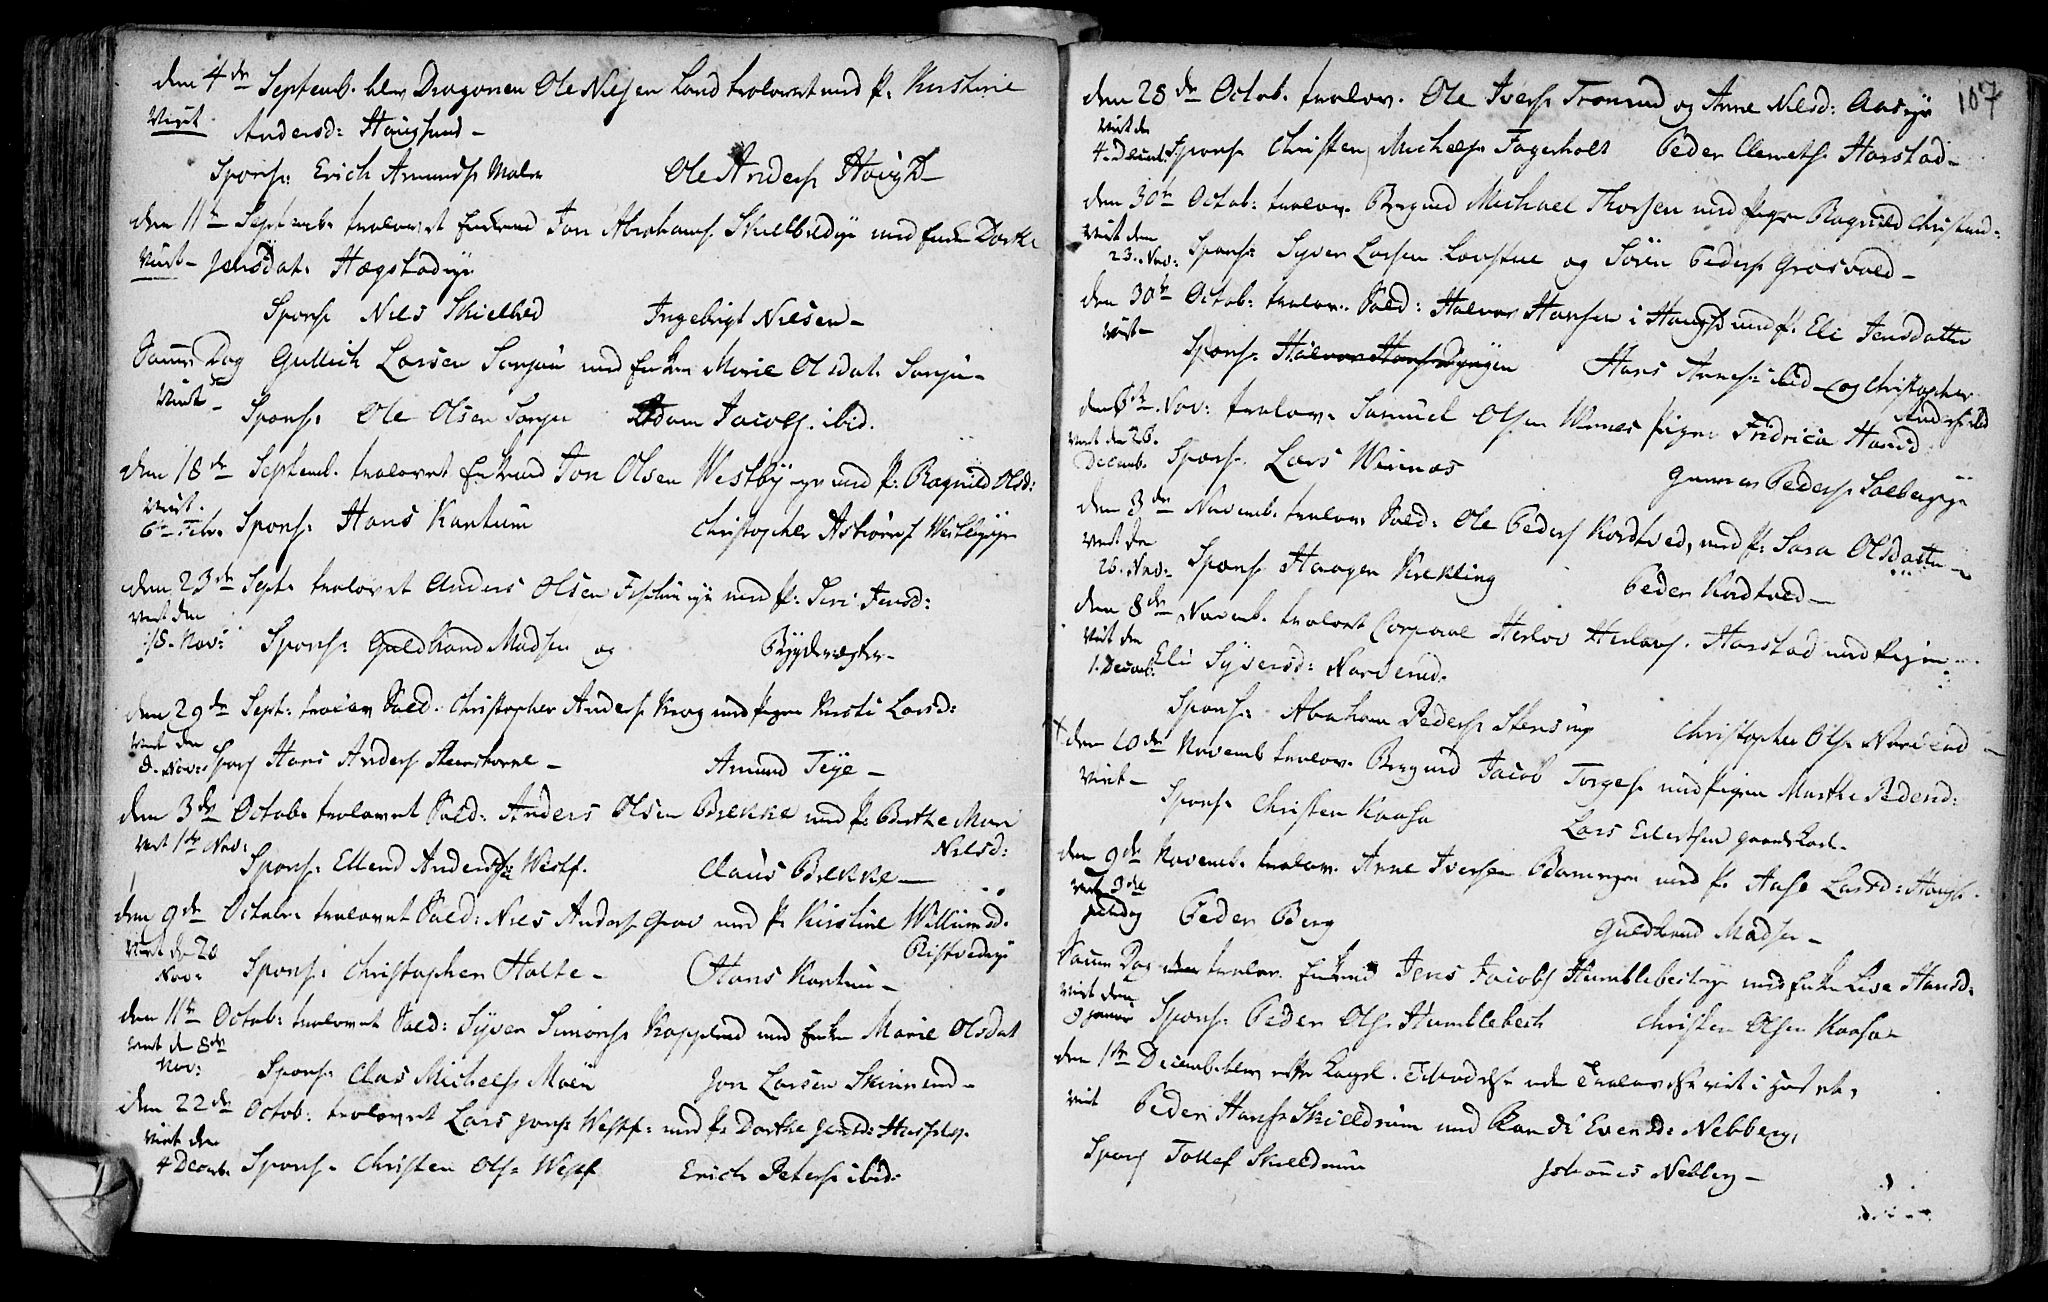 den 4de Septemb. blev Dragonen Ole Nilsen Lond trolovet med P. Kirstine
Viet. Andersd: Haugsund -
Spons: Erich Amunds: Malm Ole Anders: Haugsd -
den 11te Septemb. trolovet Enkemd Jon Abrahams. Skielbredeje med Enke Dorthe
Viet - Jensdat: Hægstadeje
Spons: Nils Skielbred Ingebrigt Nilsen -
Samme Dag Gullich Larsen Sanju med Enken Marie Olsdat. Sanju -
Viet - Spons: Ole Olsen Sanju Adam Jacobs. ibid.
den 18de Septemb. trolovet Enkemd Jon Olsen Westbÿ eje med P. Ragnild Olsd:
Viet.
6te Febr. Spons: Hans Kantum Christopher Asbiørns: Westbÿeje
den 23de Sept. trolovet Anders Olsen med P. Siri Jensd:
viet den
18. Nov: Spons: Guldbrand Madsen og Bÿgdevægter -
den 29de Sept: trolov. Sold. Christopher Anders: Krog med Pigen Kirsti Larsd:
viet den
8. Nov: Spons: Hans Anders: Steenskorne - Amund Teje -
den 3de Octob. trolovet Sold: Anders Olsen Bekke med P. Berthe Mari
Nilsd:
viet 1te Nov: Spons: Ellend Anders: Westf. Claus Bekke -
den 9de Octobr. trolovet Sold: Nils Anders: Grav med P. Kirstine Willumsd.
Ristvedeje
viet d. 20
Nov: Spons: Christopher Holte - Hans Kantum -
den 11te Octob: trolovet Sold: Sÿver Simons: Kopperud med Enke Marie Olsdat
viet d. 8de
Nov: Spons: Clas Michels: Moen Jon Larsen Skinnerud -
den 22de Octob: trolovet Lars Jons: Westf: med P. Dorthe Jensd:
viet den
4 Decemb. Spons. Christen Ols: Westf Erich Peters: ibid:
107
den 28de Octob. trolov. Ole Ivers: Tronrud og Anne Nilsd: Aaseje
viet den
4 Decemb. Spons: Christen Michels: Fagerholt Peder Clemets: Harstad -
den 30te Octob: trolov. Bergmd Michael Thorsen med Pigen Ragnild Christensd:
viet den
23. Nov: Spons: Syver Larsen Lovstue og Søren Peders: Grosvold -
den 30te Octob: trolov. Sold: Halvor Hansen i Haugsd med P. Eli Jensdatter
viet - Spons: Halvor Hans: Hans Arnes: ibid - og Christopher
Anders: ibid
den 6te Nov: trolov. Samuel Olsen Winnes Pigen Fridrica Hansd.
viet den 26.
Decemb. Spons: Lars Winnes Gunner Peders: Solbergeje
den 8de Novemb. trolov. Sold: Ole Peders: Kordtved, med P. Sara Olsdatter
viet den
26. Nov: Spons: Haagen Krekling Peder Kordtved -
den 8de Novemb. trolovet Corporal Herlov Herlovs. Harstad med Pigen
viet den
1. Decemb. Eli Sÿversd: Narverud.
Spons: Abraham Peders: Stensing Christopher Ols: Narverud -
den 10de Novemb trolov. Bergmd Jacob Torges: med Pigen Marthe Pedersd:
viet - Spons: Christen Kaasa Lars Evertsen
den 9de Novemb. trolov. Arne Iversen med P. Aase Larsd: Haugs.
viet 3de
Juledag Peder Berg Guldbrand Madsen -
Samme Dag trolov. Enkemd Jens Jacobs: Humblebecheje med Enke Lise Hansd:
viet den
9 Januar Spons: Peder Ols: Humblebech Christen Olsen Kaasa -
den 1te Decemb. blev efter Kongel. Tilladelse uden Trolovelse viet i Huset,
viet Peder Hans: Skielldrum med Randi Evensd: Nebberg,
Spons: Tollef Skielldrum Johannes Nebberg -